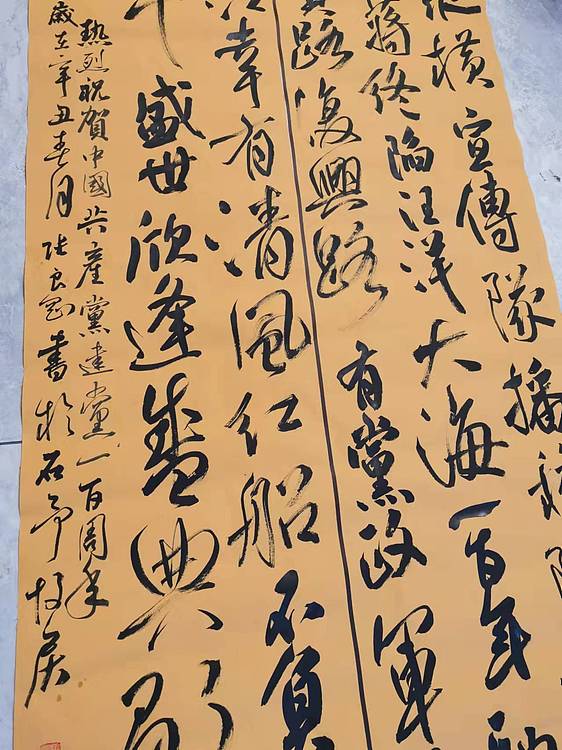 橫宣傳隊播種隊
蔣终陷汪洋大海一百年
路復興路有黨政軍
江幸有清風红船不負
盛世欣逢盛典
熱烈祝賀中國共產黨建黨一百周年
歲在辛丑春月陸良書於石居